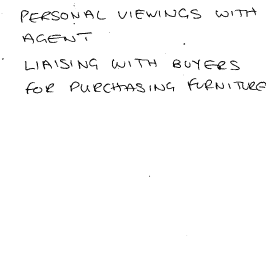 PERSONAL VIEWINGS WITH
AGENT
LIAISING WITH BUYERS
FOR PURCHASING FURNITURE